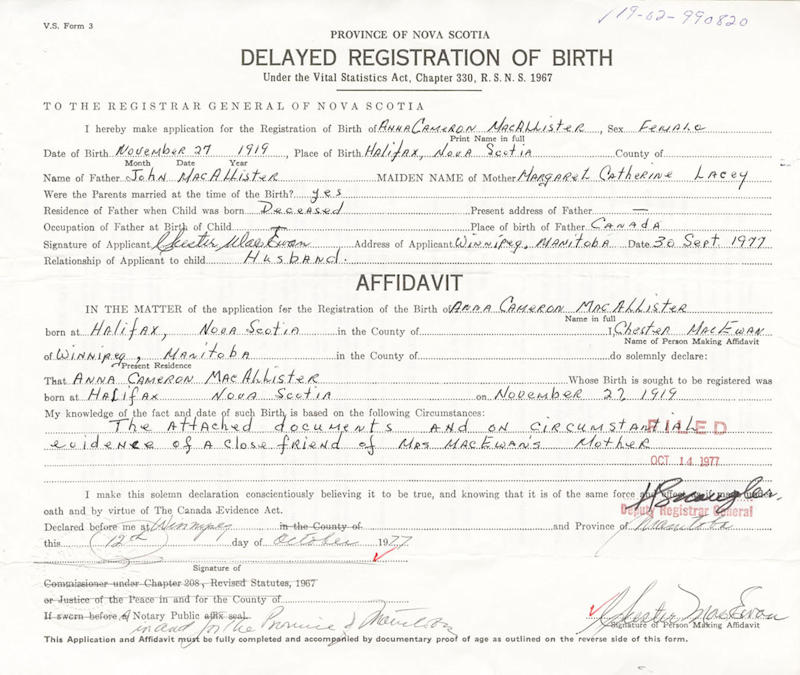 V.S. Form 3
19-02-990820
PROVINCE OF NOVA SCOTIA
DELAYED REGISTRATION OF BIRTH
Under the Vital Statistics Act, Chapter 330, R.S.N.S. 1967
TO THE REGISTRAR GENERAL OF NOVA SCOTIA
I hereby make application for the Registration of Birth of Anna Cameron MacAllister, Sex Female
Print Name in full
Date of Birth November 27 1919, Place of Birth Halifax, Nova Scotia County of
Month Date Year
Name of Father John MacAllister MAIDEN NAME of Mother Margaret Catherine Lacey
Were the Parents married at the time of the Birth? yes
Residence of Father when Child was born Deceased Present address of Father —
Occupation of Father at Birth of Child — Place of birth of Father Canada
Signature of Applicant Chester MacEwan Address of Applicant Winnipeg, Manitoba Date 30 Sept 1977
Relationship of Applicant to child Husband.
AFFIDAVIT
IN THE MATTER of the application for the Registration of the Birth of Anna Cameron MacAllister
Name in full
born at Halifax, Nova Scotia in the County of I, Chester MacEwan
Name of Person Making Affidavit
of Winnipeg, Manitoba in the County of do solemnly declare:
Present Residence
That Anna Cameron MacAllister Whose Birth is sought to be registered was
born at Halifax Nova Scotia on November 27, 1919
My knowledge of the fact and date of such Birth is based on the following Circumstances:
The attached documents and on circumstantial
FILED
evidence of a close friend of Mrs MacEwan's Mother
OCT 14 1977
I make this solemn declaration conscientiously believing it to be true, and knowing that it is of the same force and effect as if made under
oath and by virtue of The Canada Evidence Act.
Deputy Registrar General
Declared before me at Winnipeg in the County of and Province of Manitoba
this 12th day of October 1977
Signature of
Commissioner under Chapter 208, Revised Statutes, 1967
or Justice of the Peace in and for the County of
If sworn before, A Notary Public affix seal.
in and for the Province of Manitoba
Chester MacEwan
Signature of Person Making Affidavit
This Application and Affidavit must be fully completed and accompanied by documentary proof of age as outlined on the reverse side of this form.